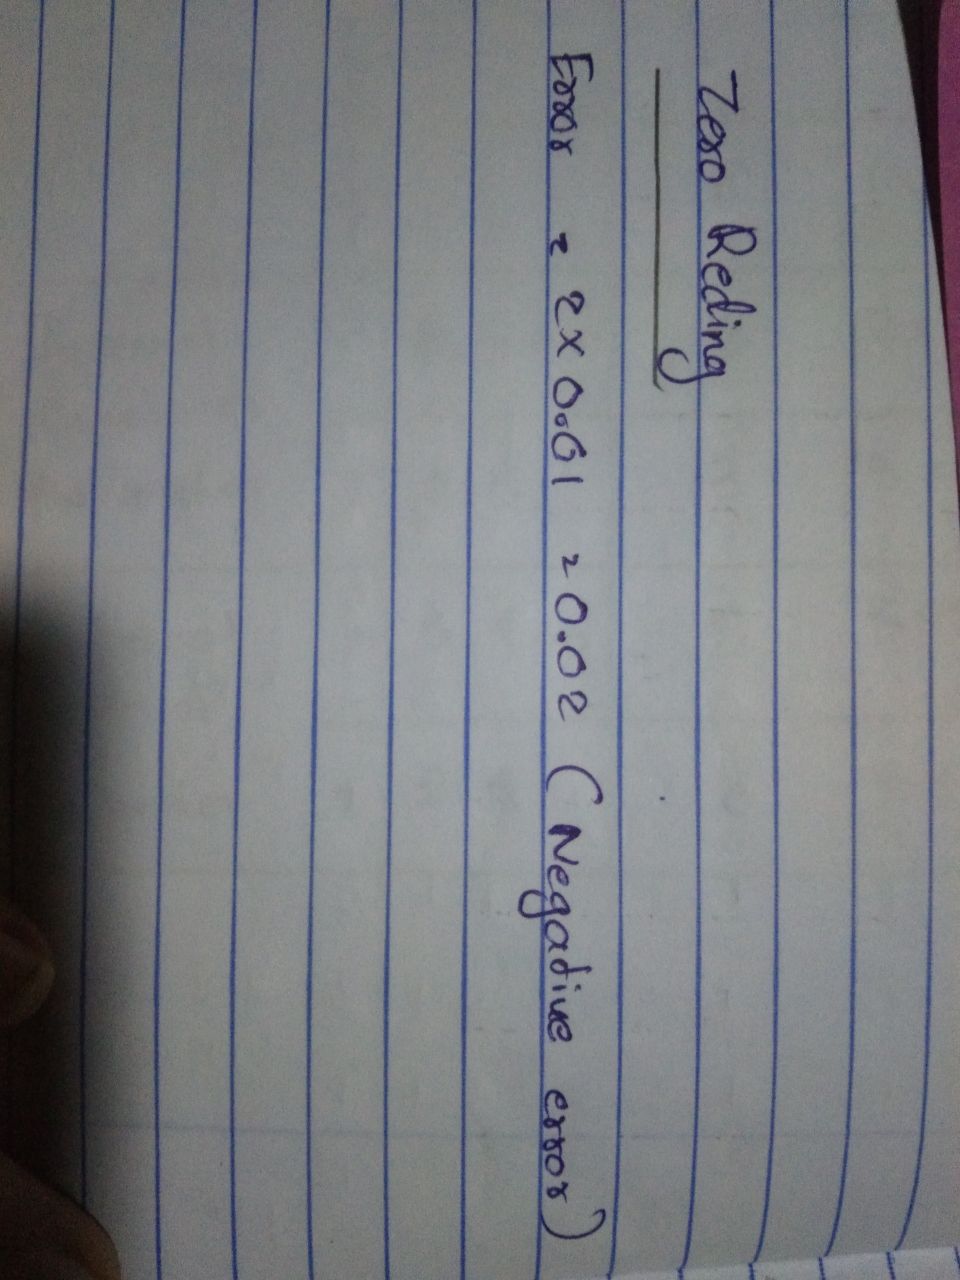 Zero Reding
Error = 2x0.01 = 0.02 (Negadive error)